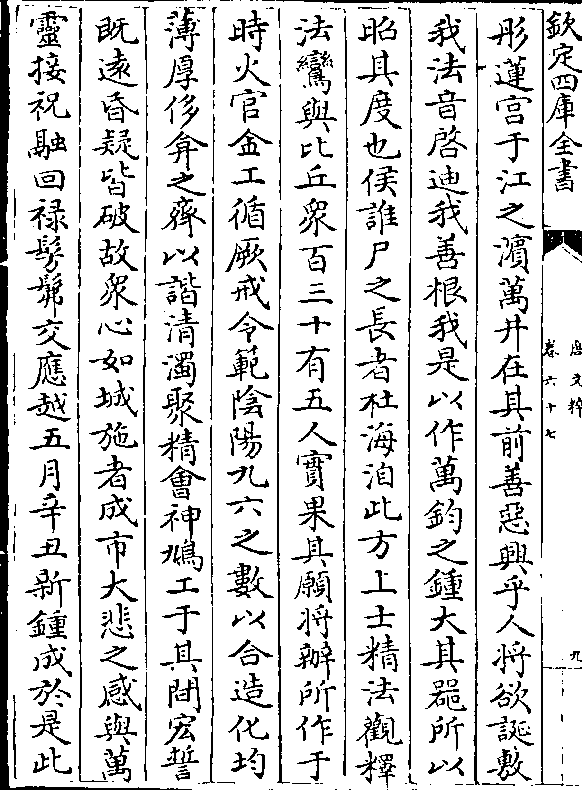 欽定四庫全書
唐文粹
卷六十七
九
彤蓮宫于江之濵萬井在其前善惡興乎人將欲誕敷
我法音啓迪我善根我是以作萬鈞之鍾大其器所以
昭其度也俟誰尸之長者杜海洎此方上士精法觀釋
法鸞與比丘衆百三十有五人實果其願將辦所作于
時火官金工循厥戒令範陰陽九六之數以合造化均
薄厚侈弇之齊以諧清濁聚精會神鳩工于其間宏誓
既遠昏疑皆破故衆心如城施者成市大悲之感與萬
靈接祝融回禄髣髴交應越五月辛丑新鍾成於是此